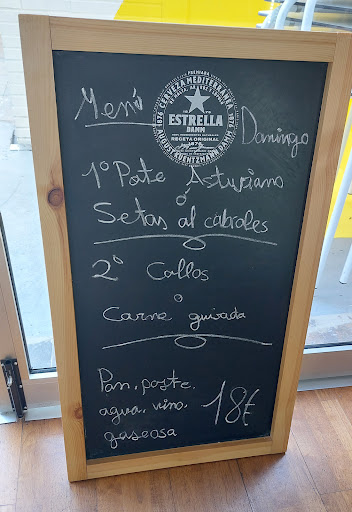 Menú
PREMIADA
CERVEZA MEDITERRÁNEA
1876
1876
ESTRELLA
DAMM
RECETA ORIGINAL
1876
AUGUST KUENTZMANN DAMM
Domingo
1º Pote Asturiano
o
Setas al cabroles
2º Callos
o
Carne guisada
Pan, postre.
agua, vino,
gaseosa
18€